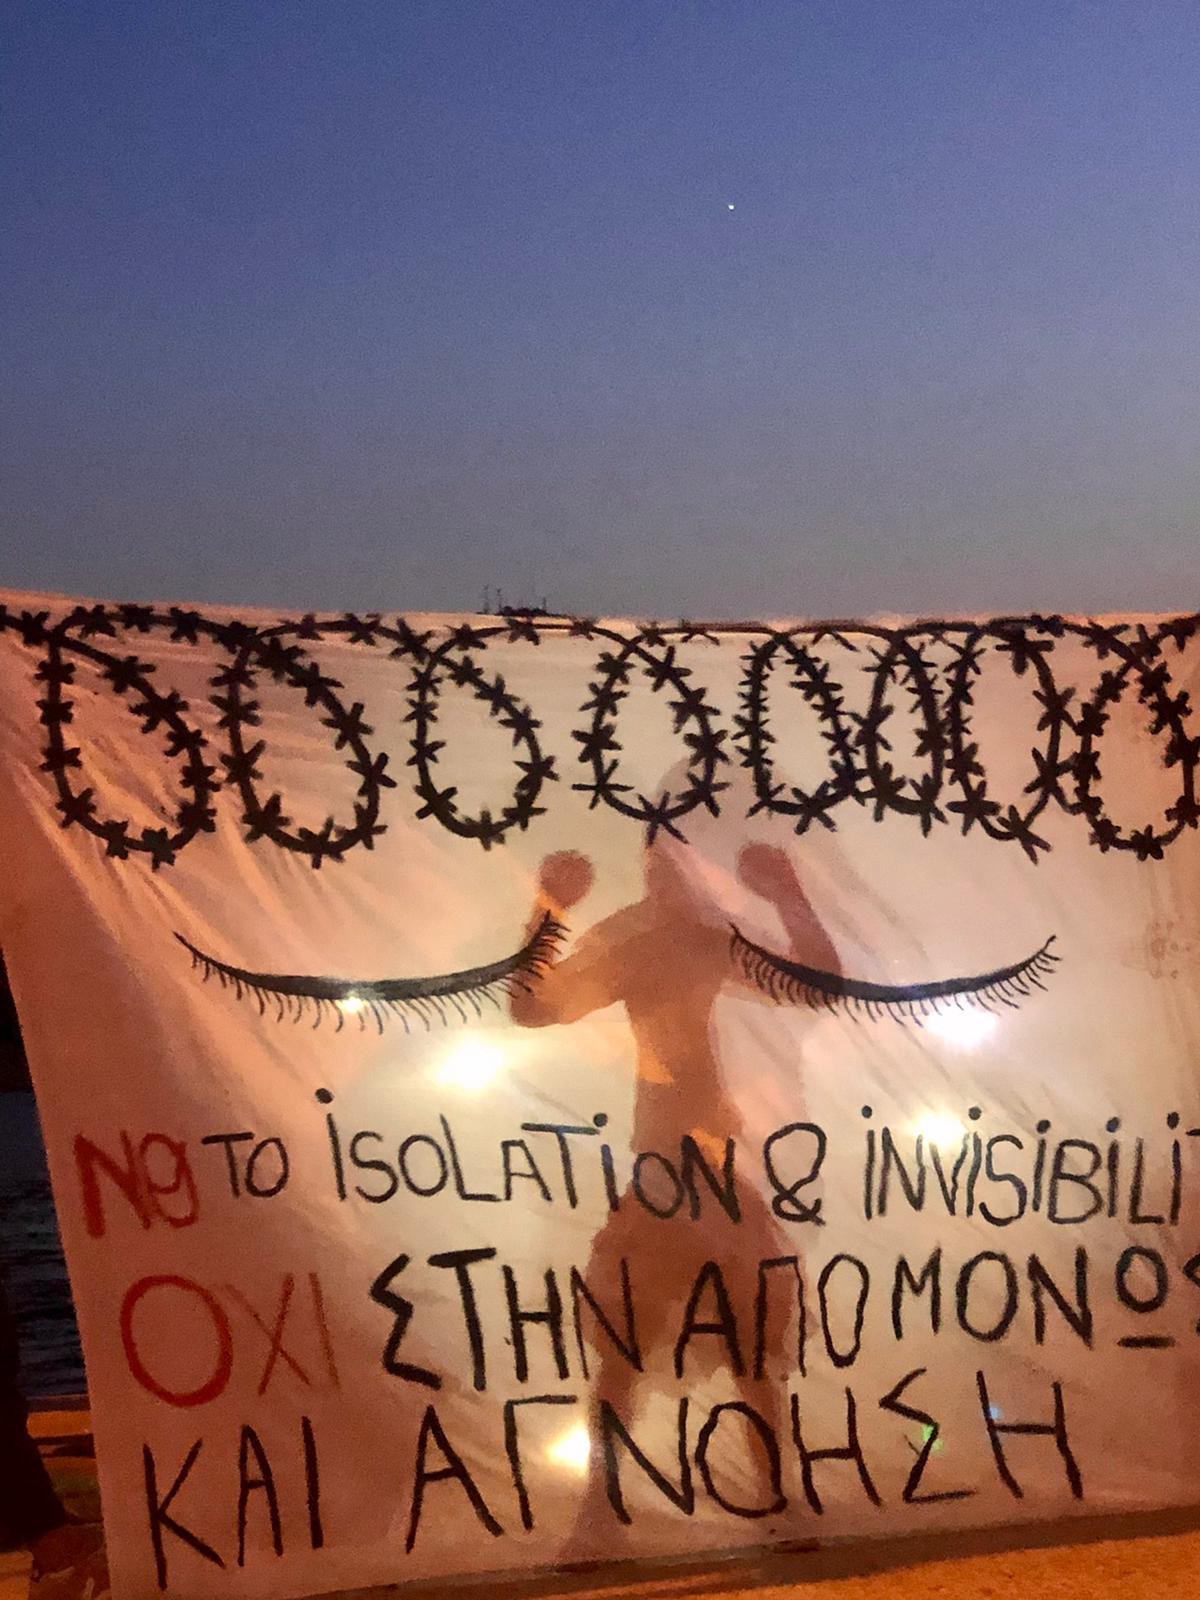 NO TO iSOLATiON & iNViSiBiLiT
ΟΧΙ ΣΤΗΝ ΑΠΟΜΟΝΩΣ
ΚΑΙ ΑΓΝΟΗΣΗ